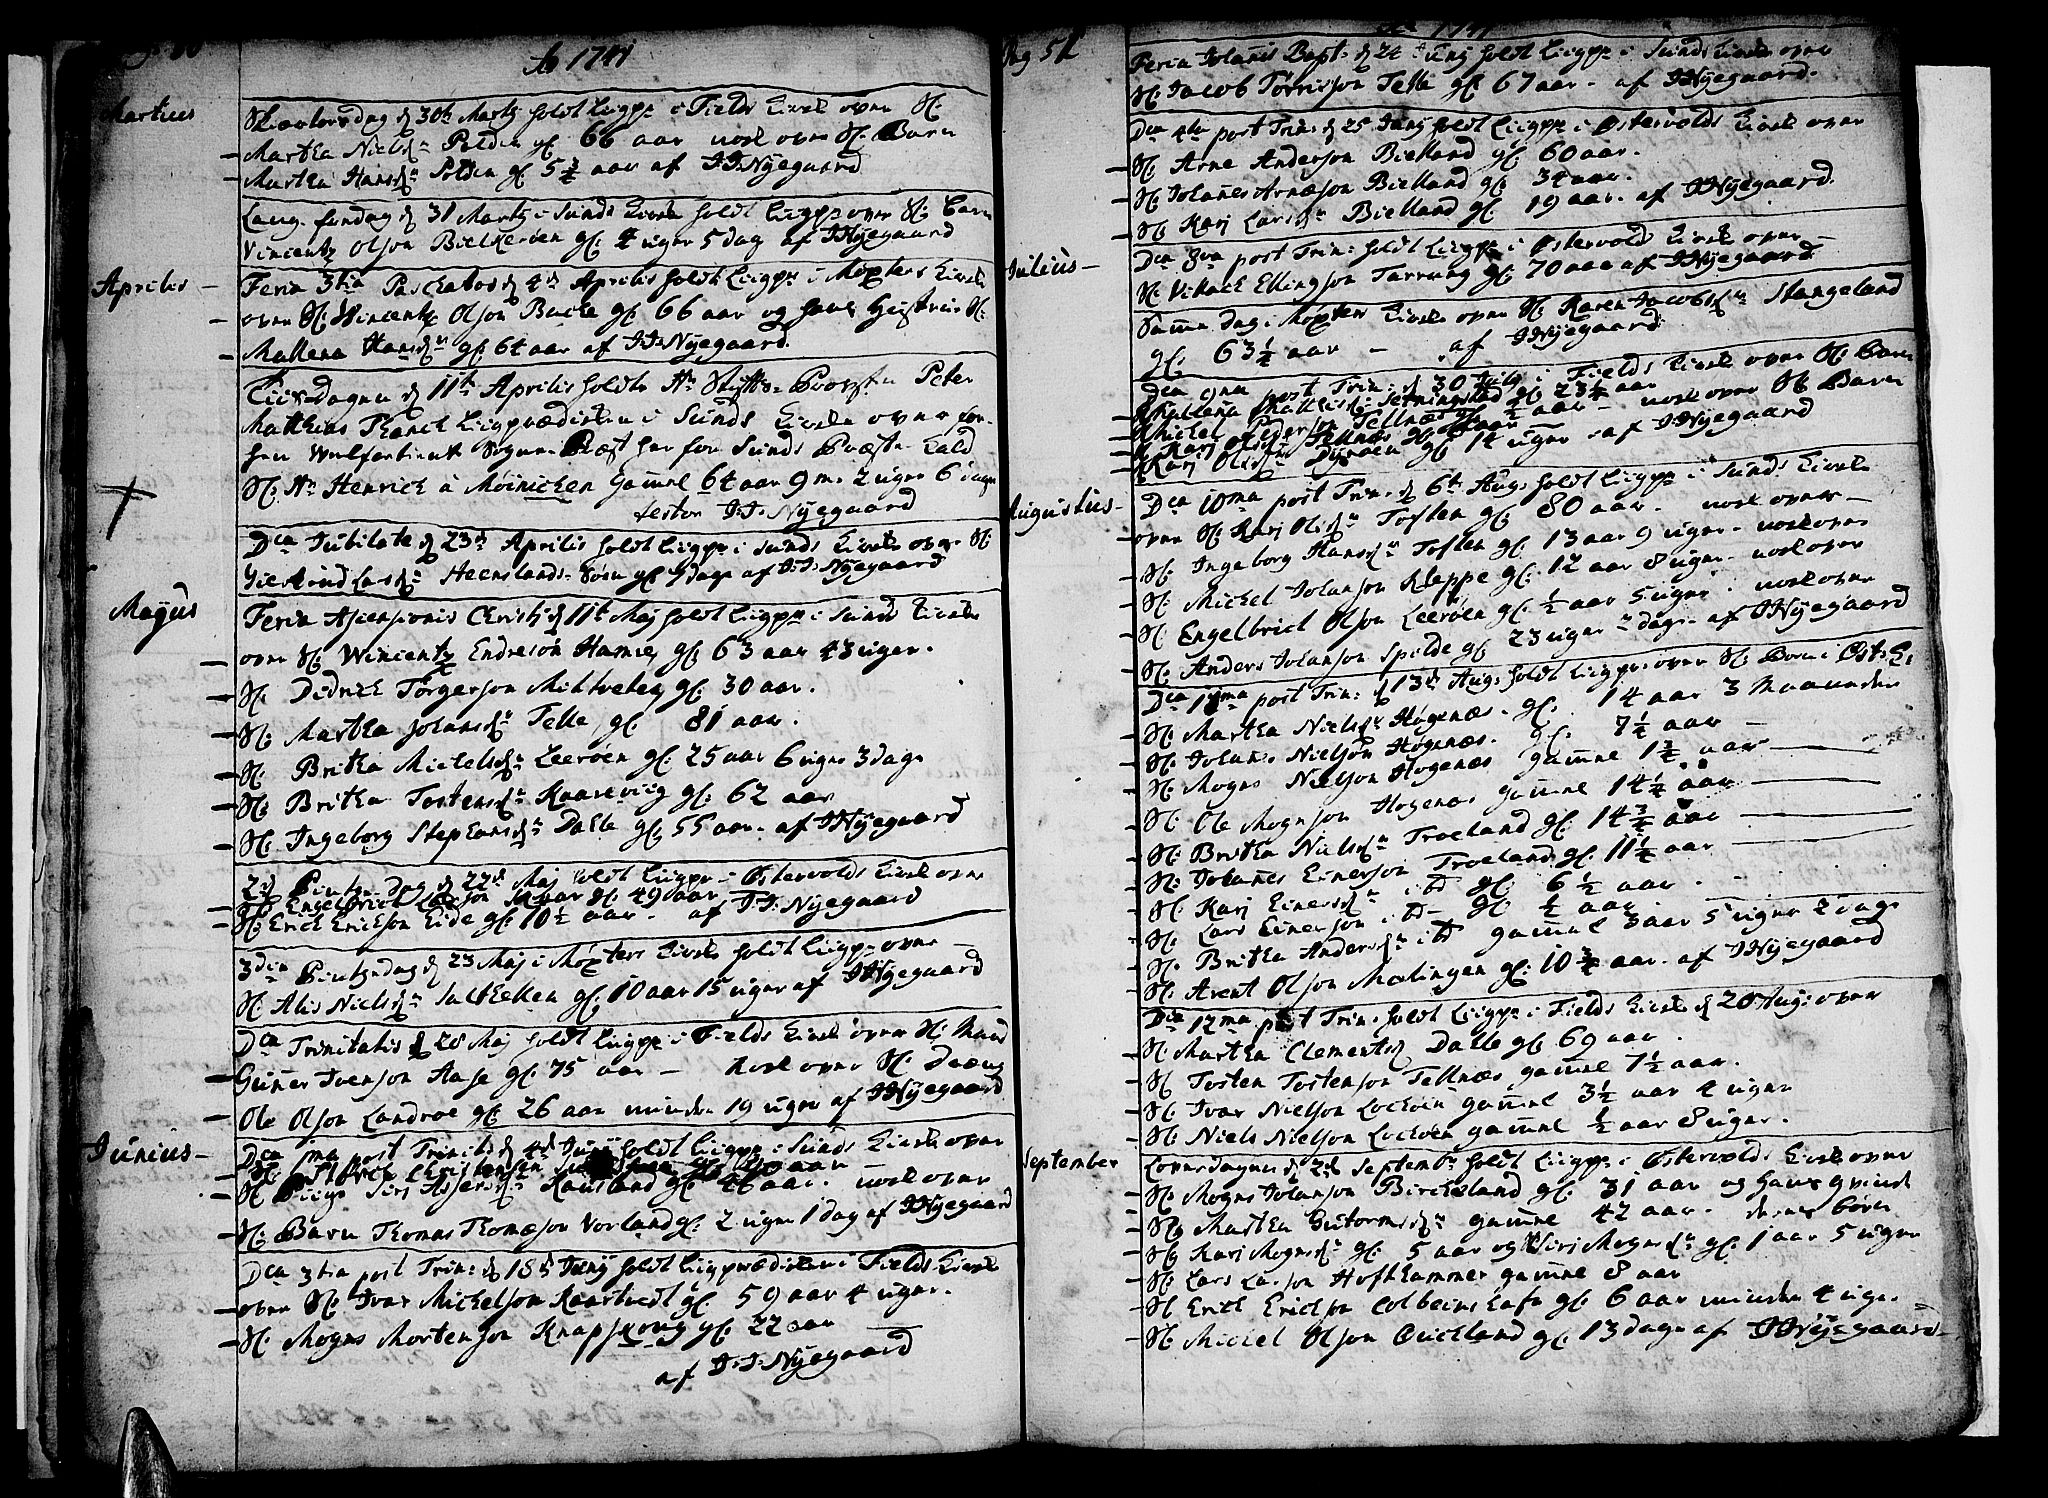 Ao 1741
Martius
Skiærtorsdag d 30th Martj holdt Liigpr i Fields Kirke over Sl:
Martha Nielsdr Polden gl: 66 aar nock over Sl: Barn
Martha Hansdr Polden gl 5 3/4 aar af J:J:Nyegaard
Lang fredag d 31 Martj i Sunds Kirke holdt Liigpr over Sl: barn
Vincentz Olson Bielkerøen gl: 4 uger 5 dag af JJNyegaard
Aprilis
Feria 3tia Paschatos d 4th Aprilis holdt Liigpr i Møxters Kirke
over Sl: Wincentz Olson Bache gl: 66 aar og hans Hustrue Sl:
Mallena Hansdr gl: 64 aar af J:J:Nyegaard.
Tiisdagen d 11th Aprilis holdte Hr Stifts-Provsten Peter
Matthias Liigprædiken i Sunds Kirke over for-
hen Sogne Præst her for Sunds Præste Kald
Sl: Hr Henrick à Møinichen Gammel 64 aar 9 m: 2 uger 6 dage
testor J:J:Nyegaard
Dca Jubilate d 23d Aprilis holdt Liigpr i Sunds Kirke over Sl:
Giertrud Larsdr Heenslands-Børn gl: 9 dage af J:J:Nyegaard
Majus
Feria Ascensionis Christi d 11t Maj holdt Liigpr i Sunds Kirke
over Sl: Wincentz Endreson Hamre gl: 63 aar 43 uger.
Sl: Didrich Torgerson Mihtveteg gl: 30 aar.
Sl: Martha Johansdr Telle gl: 81 aar.
Sl: Britha Michelsdr Leerøen gl: 25 aar 6 uger 3 dage
Sl: Britha Tostensdr Kaarevig gl: 62 aar
Sl: Ingeborg Stephansdr Dalle gl: 55 aar. af JJNyegaard
2d Pintzedag d 22d Maj holdt Liigpr i Østervolds Kirke over
Sl: Engelbrict gl: 49 aar
Sl: Erick Erickson Eide gl: 10 1/2 aar. af J:J:Nyegaard
3die Pintzedag d 23 Maj i Møxters Kirke holdt Liigpr over
Sl: Alis Nielsdr Salthellen gl: 10 aar 15 uger af JJNyegaard
Dca Trinitatis d 28 Maj holdt Liigpr i Fields Kirke over Sl: Mand
Gunner Ivenson Aase gl: 75 aar — nock over Sl: Dreng
Ole Olson Landroe gl: 26 aar minden 19 uger af JJNyegaard
Junius
Dca 1ma post Trinit: d 4d Junij holdt Liigpr i Sunds Kirke over
Sl: Christensen aar
Sl: Piige Siri Assersdr Lansland gl: 46 aar. nock over
Sl: Barn Thomas Thomæson Vorland gl: 2 uger 1 dag af JJNyegaard
Dca 3tia post Trin: d 18d Junij holdt Liigprædiken i Fields Kirke
over Sl: Ivar Michelson Kaartvedt gl: 59 aar 4 uger.
Sl: Mogns Mortenson Knapskoug gl: 22 aar
af J:J:Nyegaard
Pag 51
Ao 1741
Feria Johannis Bapt: d 24 Junij holdt Liigpr i Sunds Kirke over
Sl: Jacob Torrisson Telle gl: 67 aar. af JJNyegaard.
Dca 4ta post Trin: d 25 Junij holdt Liigpr i Østervolds Kirke over
Sl: Arne Anderson Bielland gl: 60 aar.
Sl: Johannes Arneson Bielland gl: 34 aar.
Sl: Karj Larsdr Bielland gl: 19 aar. af JJNyegaard.
Julius
Dca 8va post Trin: holdt Liigpr i Østervolds Kirke over
Sl: Villach Ellingson Tarrang gl: 70 aar af JJNyegaard
Samme dag i Møxters Kirke over Sl: Karen Jacobsdr Stangeland
gl: 63 1/2 aar — af JJNyegaard
Dca 9na post Trin: d 30 Julij i Fields Kirke over Sl: Barn
Mallena gl: 23 1/4 aar
Michel Pederson Tellnæs gl: 1/2 aar nock over Sl: Barn
Karj Tellnæs
Karj Olsdr Dyrøen gl: 14 uger af JJNyegaard
Augustus
Dca 10ma post Trin: d 6t Aug: holdt Liigpr i Sunds Kirke
over Sl: Karj Olsdr Toften gl: 80 aar. nock over
Sl: Ingeborg Hansdr Toften gl: 13 aar 9 uger. nock over
Sl: Michel Johanson Kleppe gl: 12 aar 8 uger. nock over
Sl: Engelbrict Olson Leerøen gl: 1/2 aar 5 uger. nock over
Sl: Anders Johanson Spilde gl: 23 uger 2 dage. af JJNyegaard
Dca 11ma post Trin: d 13d Aug: holdt Liigpr over Sl: Børn i Øst: K:
Sl: Martha Nielsdr Høgenæs. gl: 14 aar 3 Maaneder
Sl: Johans Nielson Høgenæs. gl: 7 1/2 aar
Sl: Mogns Nielson Høgenæs gammel 1 3/4 aar
Sl: Ole Mognson Høgenæs gammel 14 1/4 aar
Sl: Britha Nielsdr Troeland gl: 14 3/4 aar
Sl: Johannes Einerson Troeland gl: 11 1/4 aar
Sl: Karj Einersdr ibd gl: 6 1/2 aar.
Sl: Lars Einerson ibd gl: 1/2 aar
Sl: Britha Andersdr ibd gammel 3 aar 5 uger 2 dage
Sl: Arent Olson Malingen gl: 10 3/4 aar. af JJNyegaard
Dca 12ma post Trin: holdt Liigpr i Fields Kirke d 20 Aug: over
Sl: Martha Clementsdr Dalle gl: 69 aar
Sl: Tosten Tostenson Tellnæs gammel 7 1/2 aar.
Sl: Ivar Nielson Lockøen gammel 3 1/2 aar 4 uger
Sl: Niels Nielson Lockøen gammel 1/2 aar 8 uger.
September
Løverdagen d 2d Septembr holdt Liigpr i Østervolds Kirke over
Sl: Mogns Johanson Birckeland gl: 31 aar og hans qvinde
Sl: Martha Guttormsdr gammel 42 aar. deres børn
Sl: Karj Mognsdr gl: 5 aar og Siri Mognsdr gl: 1 aar 5 uger
Sl: Lars Larson Hofthammer gammel 8 aar
Sl: Erick Erickson Colbeins gl: 6 aar minden 4 uge.
Sl: Michel Olson Quickland gl: 13 dage af JJNyegaard